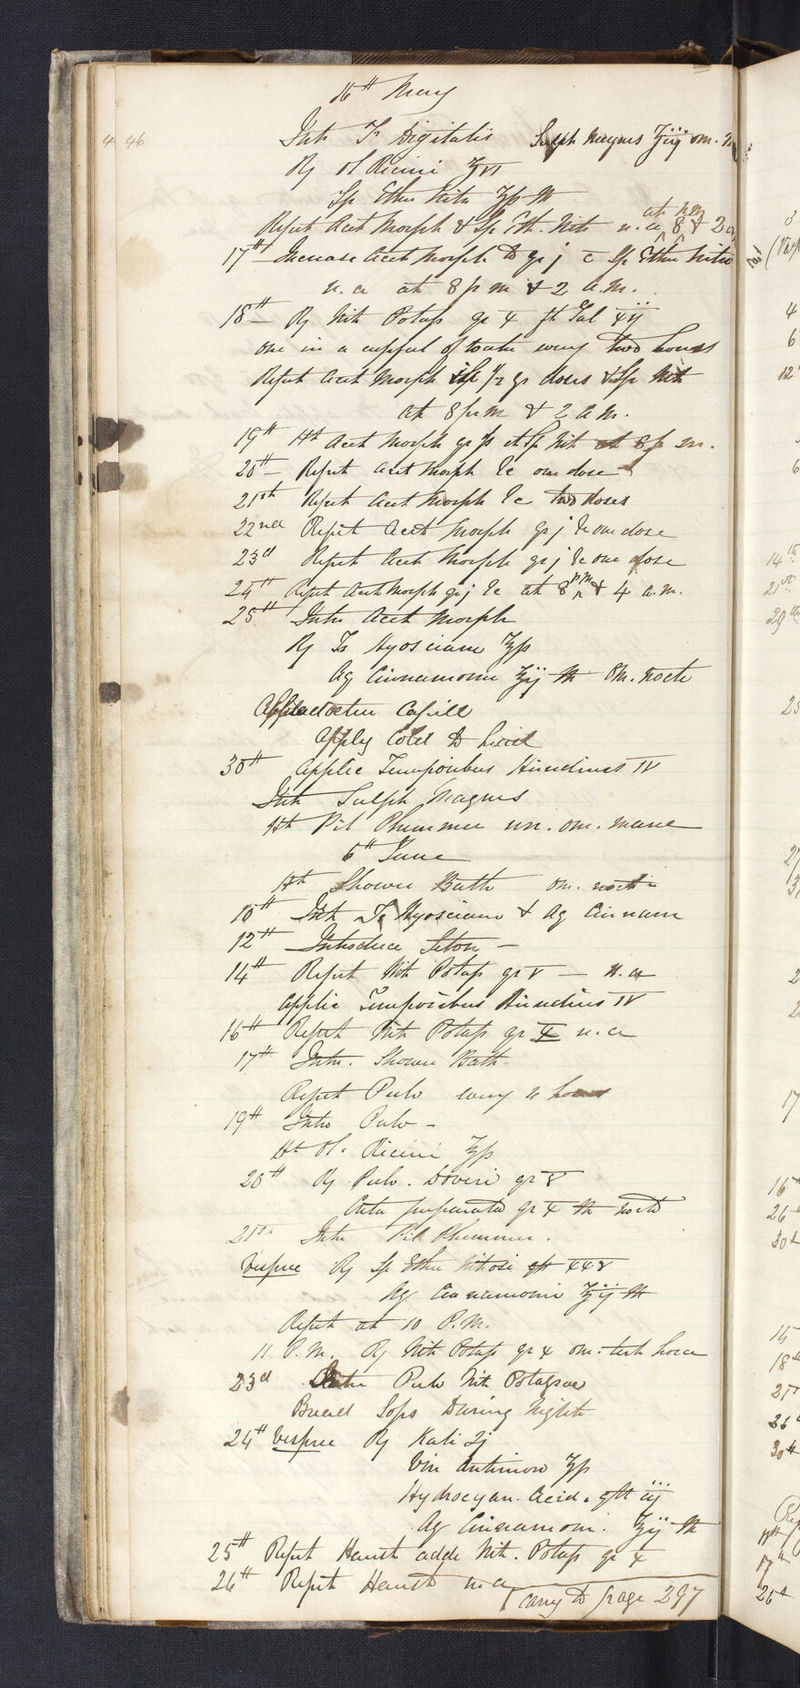 16th May
4 46
Intr Tr Digitalis Sulph Magnes ʒiij om.
R/ Ol Ricini ʒvi
Sp Ether Nitr ʒß M
Repet Acet Morph & Sp Eth. Nitr n. a 8 at p.m. & 2 a
17th Increase Acet Morph to gr j c Sp Ether Nitro
n. a at 8 p m & 2 a.m.
18th R/ Nit Potass gr x ft Tal xij
one in a cupful of water every two hours
Repet Acet Morph in 1/2 gr doses & Sp Nit
at 8 p.m & 2 a m.
19th Ht Acet Morph gr ß et Sp Nit at 8 p m.
20th Repet Acet Morph &c one dose
21st Repet Acet Morph &c two doses
22nd Repet Acet Morph gr j &c one dose
23d Repet Acet Morph gr j &c one dose
24th Repet Acet Morph gr j &c at 8 p m & 4 a.m.
25th Intr Acet Morph
R/ Tr Hyosciami ʒß
Aq Cinnamomi ʒij M Om. nocte
Capill
Apply Cold to head
30th Applic Temporibus Hirudines IV
Intr Sulph Magnes
Ht Pil Plummer un. om. mane
6th June
Ht Shower Bath om. nocte
10th Intr Tr Hyosciam & Aq Cinnam
12th Introduce Seton
14th Repet Nit Potass gr v — n. a
Applic Temporibus Hirudines IV
16th Repet Nit Potass gr x n. a
17th Intr. Shower Bath
Repet Pulv every 4 hours
19th Intr Pulv
Ht Ol. Ricini ʒß
20th R/ Pulv. Doveri gr v
Creta preparata gr x M nocte
21st Intr Pil Plummer.
Vespere R/ Sp Ether Nitrosi gtt xxv
Aq Cinnamomi ʒij M
Repet at 10 P.M.
11 P.M. R/ Nit Potass gr x om. tert hora
23d Intr Pulv Nit Potassae
Bread Sops During Night
24th Vespere R/ Kali ℈j
Vin Antimon ʒß
Hydrocyan. Acid. gtt iij
Aq Cinnamom. ʒij M
25th Repet Haust adde Nit. Potass gr x
26th Repet Haust n. a
carry to page 297